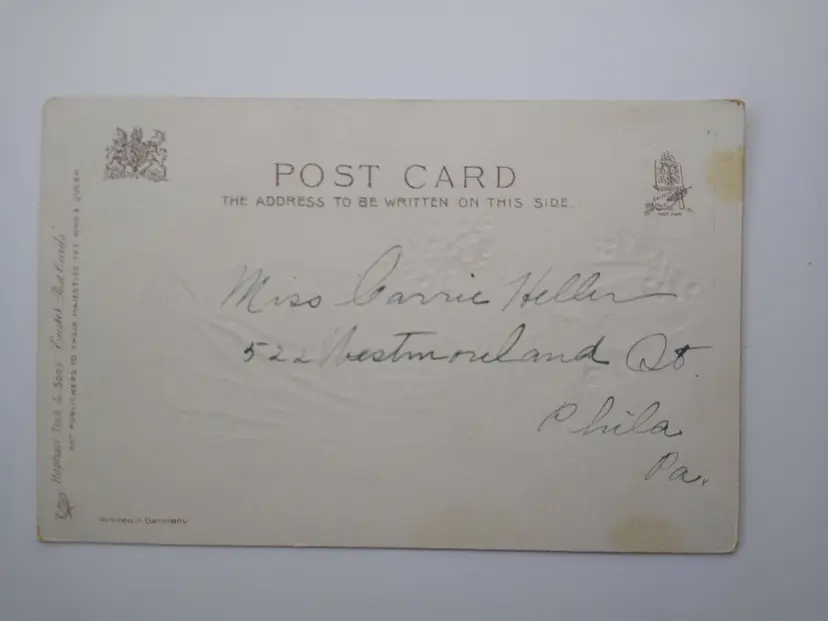 POST CARD
THE ADDRESS TO BE WRITTEN ON THIS SIDE.
Miss Carrie Heller
522 Westmoreland St.
Phila
Pa.
Raphael Tuck & Sons' "Easter" Post Cards"
ART PUBLISHERS TO THEIR MAJESTIES THE KING & QUEEN
Printed in Germany